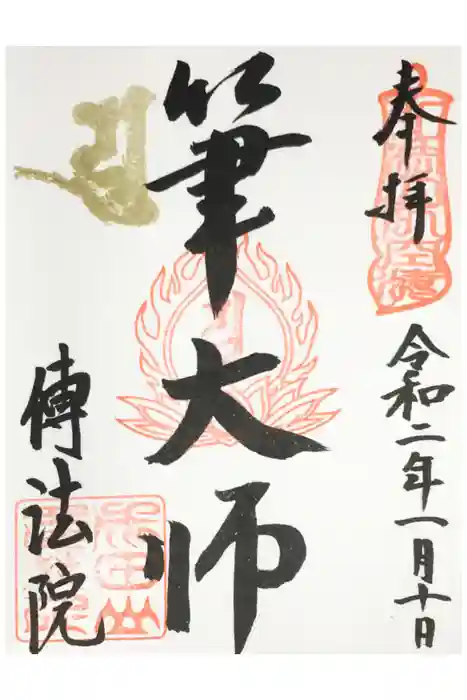 奉拝
令和二年一月十日
筆大師
傳法院